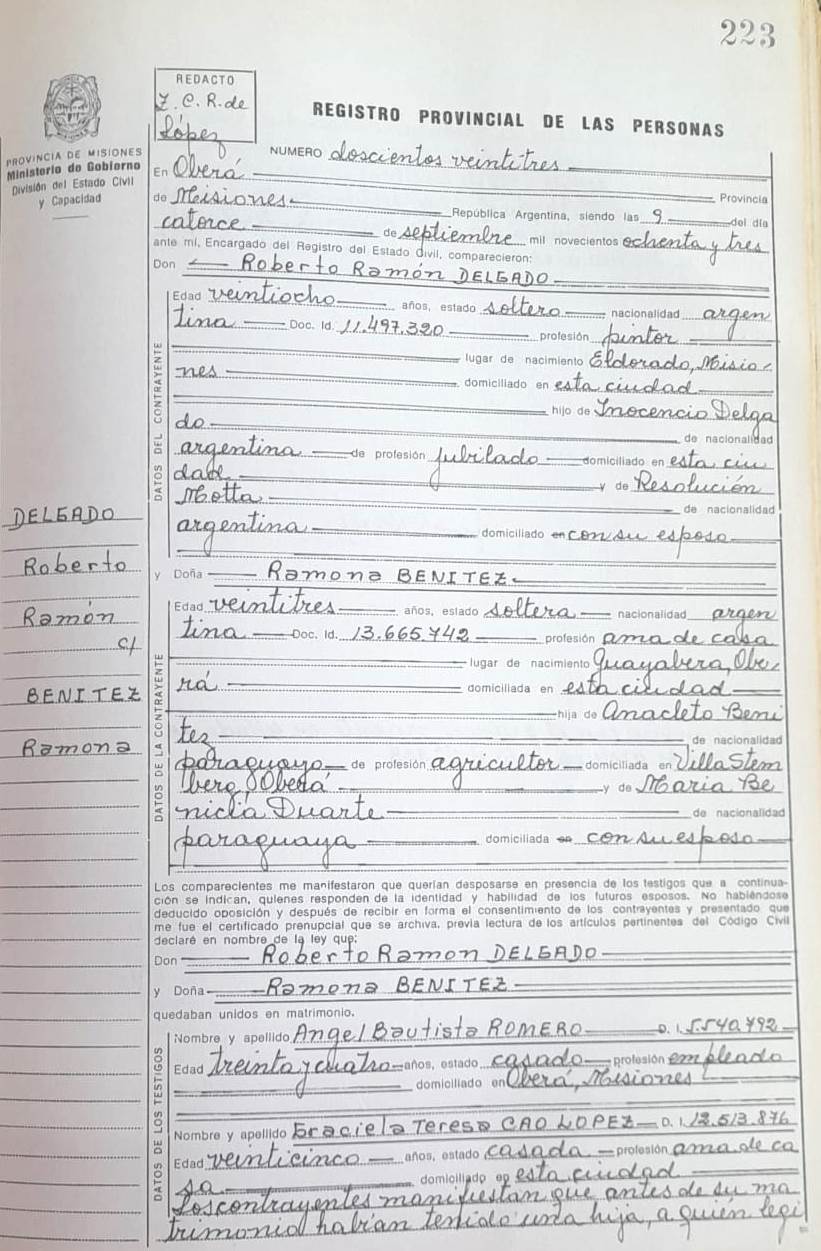 223
REDACTO
Z. C. R. de
López
REGISTRO PROVINCIAL DE LAS PERSONAS
PROVINCIA DE MISIONES
Ministerio de Gobierno
División del Estado Civil
y Capacidad
NUMERO doscientos veintitres
En Oberá
Provincia
de Misiones República Argentina, siendo las 9 del día
catorce de septiembre mil novecientos ochenta y tres
ante mi, Encargado del Registro del Estado Civil, comparecieron:
Don Roberto Ramón DELGADO
DATOS DEL CONTRAYENTE
Edad veintiocho años, estado soltero nacionalidad argen
tina Doc. Id. 11.497.320 profesión pintor
lugar de nacimiento Eldorado, Misio
nes domiciliado en esta ciudad
hijo de Inocencio Delga
do de nacionalidad
argentina de profesión jubilado domiciliado en esta ciu
dad y de Resolución
Motta de nacionalidad
argentina domiciliado en con su esposo
DELGADO
Roberto
Ramón
c/
BENITEZ
Ramona
y Doña Ramona BENITEZ
DATOS DE LA CONTRAYENTE
Edad veintitres años, estado soltera nacionalidad argen
tina Doc. Id. 13.665.742 profesión ama de casa
lugar de nacimiento Guayabera, Obe
rá domiciliada en esta ciudad
hija de Anacleto Beni
tez de nacionalidad
paraguayo de profesión agricultor domiciliada en Villa Stem
berg, Oberá y de Maria Be
nicia Duarte de nacionalidad
paraguaya domiciliada en con su esposo
Los comparecientes me manifestaron que querían desposarse en presencia de los testigos que a continua-
ción se indican, quienes responden de la identidad y habilidad de los futuros esposos. No habiéndose
deducido oposición y después de recibir en forma el consentimiento de los contrayentes y presentado que
me fue el certificado prenupcial que se archiva, previa lectura de los artículos pertinentes del Código Civil
declaré en nombre de la ley que:
Don Roberto Ramon DELGADO
y Doña Ramona BENITEZ
quedaban unidos en matrimonio.
DATOS DE LOS TESTIGOS
Nombre y apellido Angel Bautista ROMERO D. I. 5.540.792
Edad treinta y cuatro años, estado casado profesión empleado
domiciliado en Oberá, Misiones
Nombre y apellido Graciela Teresa CAO LOPEZ D. I. 12.513.876
Edad veinticinco años, estado casada profesión ama de ca
sa domiciliado en esta ciudad
Los contrayentes manifiestan que antes de su ma
trimonio habían tenido una hija, a quien legi